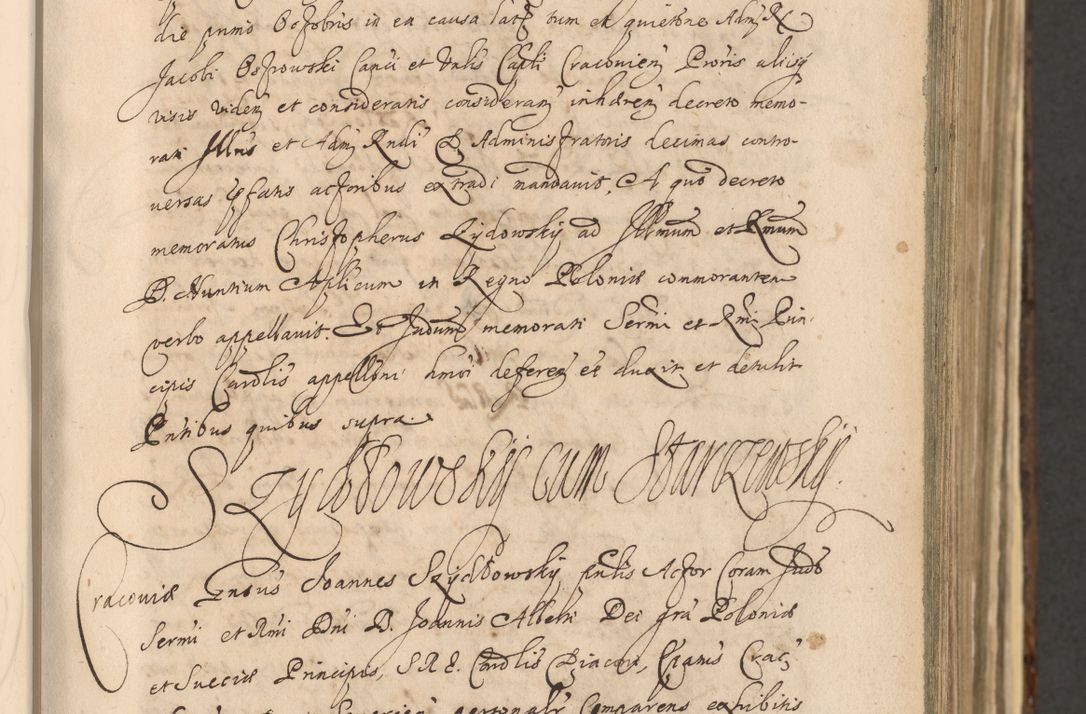 die primo Octobris in ea causa lat tum et quietone Adm R
Jacobi Ostrowski Canci et Valis Capli Cracovien Proris aliisq
visis viden et consideratis consideran inhæren decreto memo-
rati Illris et Adm Rndi D Administratoris decimas contro-
versas præfatis actoribus extradi mandavit, A quo decreto
memoratus Christopherus Zydowskij ad Illmum et Rmum
D. Nuntium Aplicum in Regno Poloniæ commorantem
verbo appellavit. Et Judium memorati Sermi et Rmi Prin-
cipis Cardlis appellōni hmoi deferen eē duxit et detulit
Pntibus quibus supra.
Szydłowskij cum Starczewskij.
Cracoviæ Gnosus Joannes Szydłowskij pntis Actor Coram Judo
Sermi et Rmi Dni D. Joannis Alberti Dei gra Poloniæ
et Sueciæ Principis, S.R.E. Cardlis Diaconi, Epatus Crac
personalr Comparens exhibitis